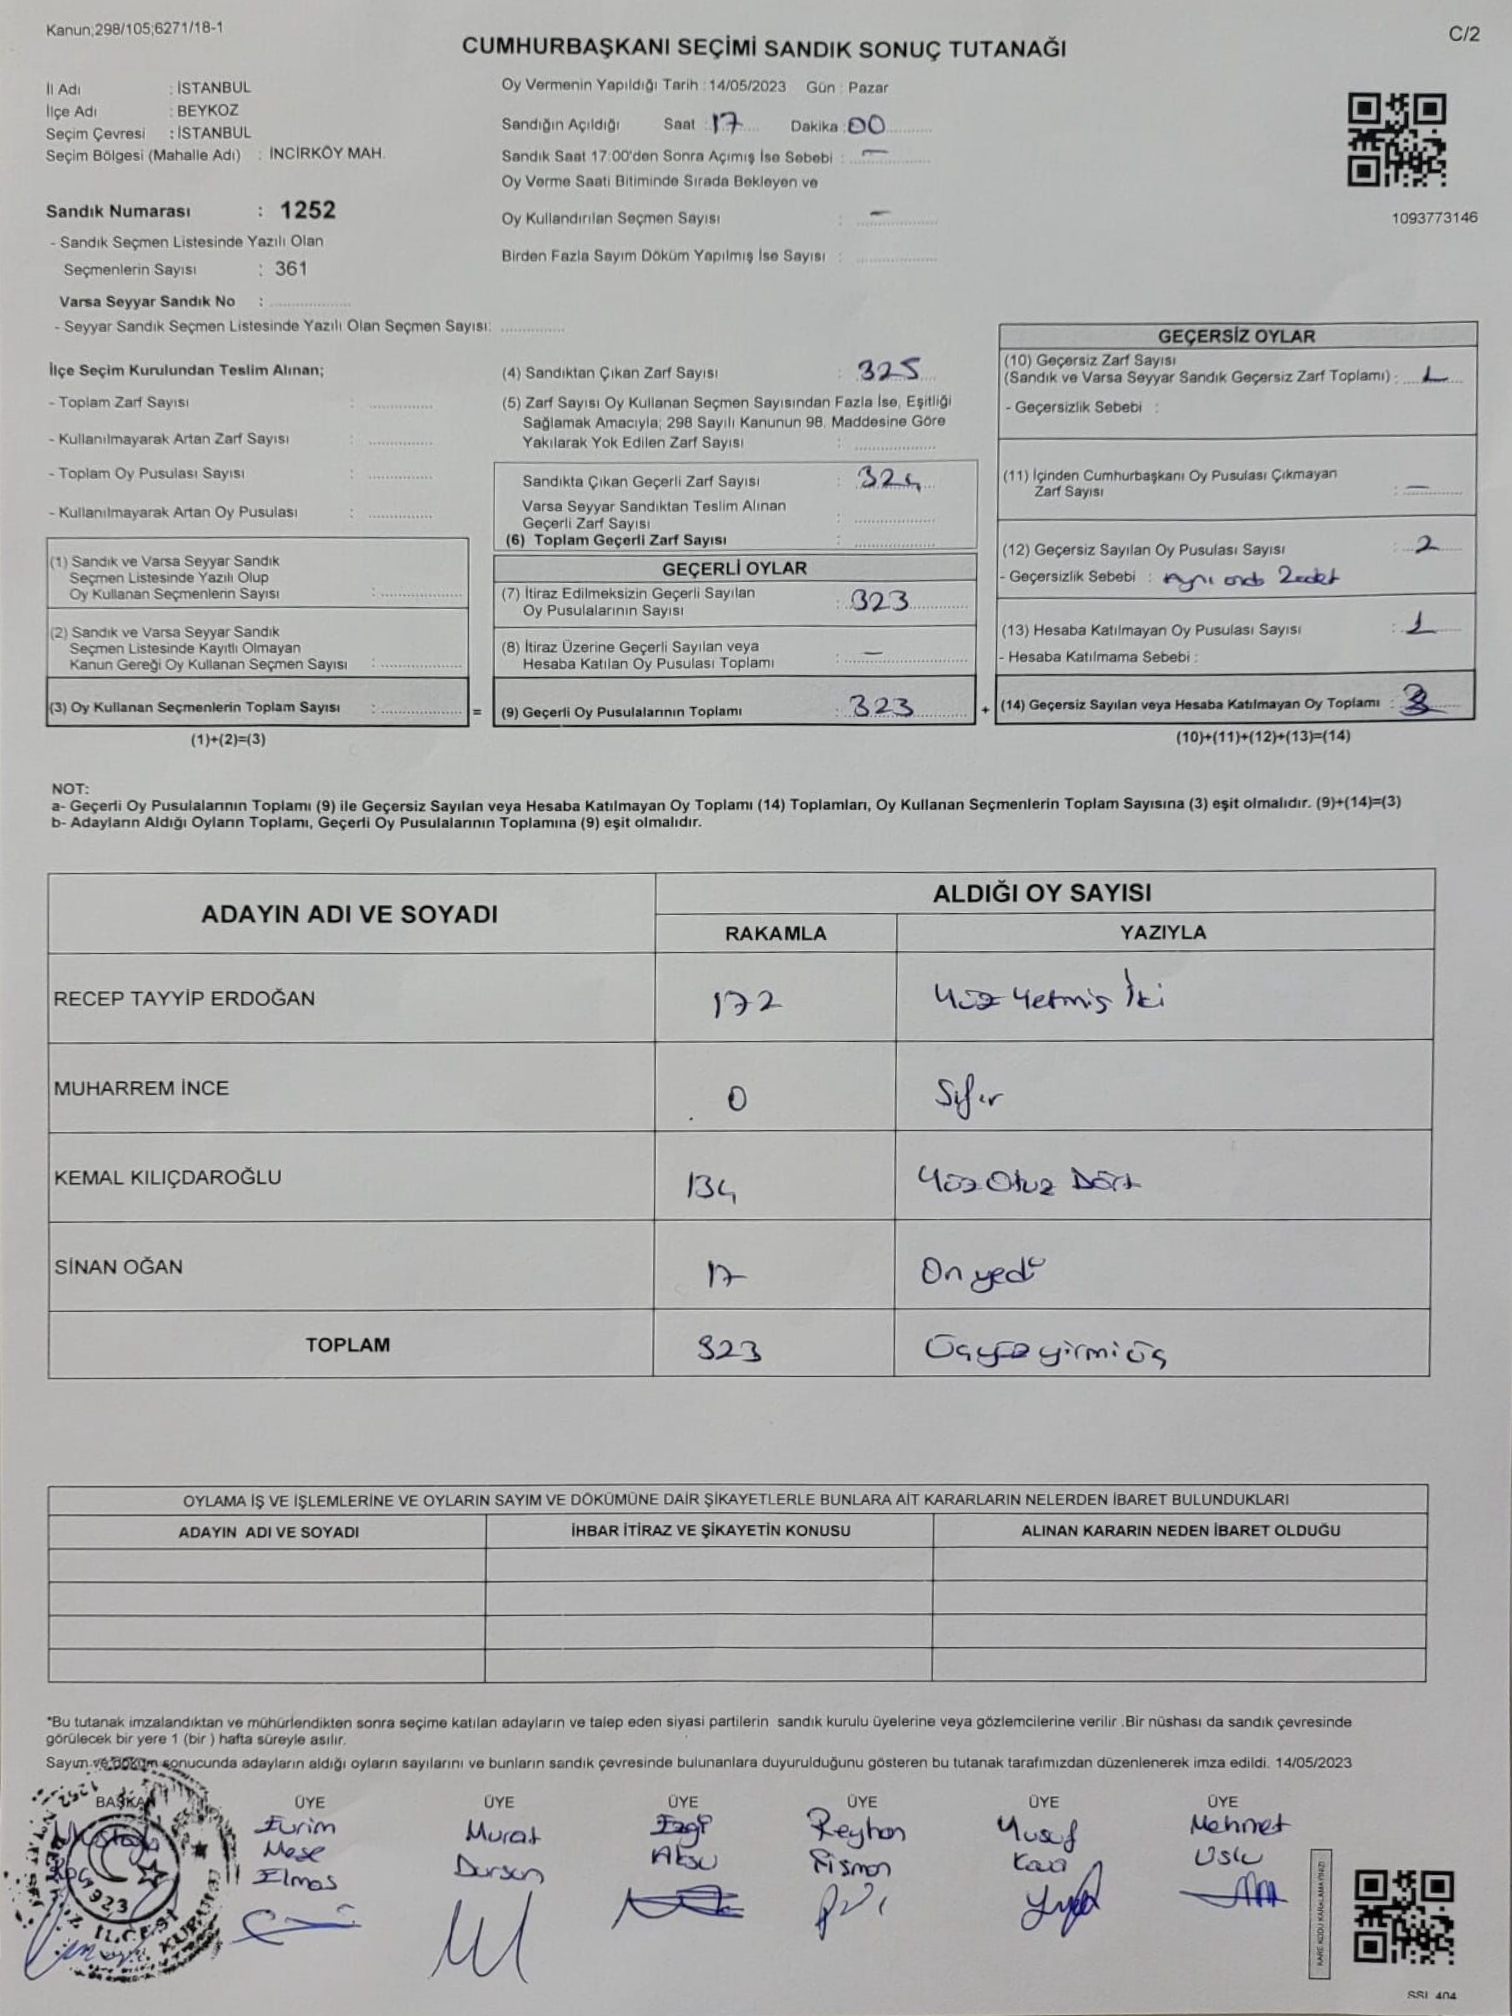 Kanun;298/105;6271/18-1
C/2
CUMHURBAŞKANI SEÇİMİ SANDIK SONUÇ TUTANAĞI
İl Adı : İSTANBUL
İlçe Adı : BEYKOZ
Seçim Çevresi : İSTANBUL
Seçim Bölgesi (Mahalle Adı) : İNCİRKÖY MAH.
Sandık Numarası : 1252
- Sandık Seçmen Listesinde Yazılı Olan
Seçmenlerin Sayısı : 361
Varsa Seyyar Sandık No :
- Seyyar Sandık Seçmen Listesinde Yazılı Olan Seçmen Sayısı:
Oy Vermenin Yapıldığı Tarih : 14/05/2023 Gün : Pazar
Sandığın Açıldığı Saat : 17 Dakika : 00
Sandık Saat 17:00'den Sonra Açımış İse Sebebi : —
Oy Verme Saati Bitiminde Sırada Bekleyen ve
Oy Kullandırılan Seçmen Sayısı : —
Birden Fazla Sayım Döküm Yapılmış İse Sayısı :
1093773146
İlçe Seçim Kurulundan Teslim Alınan;
- Toplam Zarf Sayısı :
- Kullanılmayarak Artan Zarf Sayısı :
- Toplam Oy Pusulası Sayısı :
- Kullanılmayarak Artan Oy Pusulası :
(1) Sandık ve Varsa Seyyar Sandık
Seçmen Listesinde Yazılı Olup
Oy Kullanan Seçmenlerin Sayısı :
(2) Sandık ve Varsa Seyyar Sandık
Seçmen Listesinde Kayıtlı Olmayan
Kanun Gereği Oy Kullanan Seçmen Sayısı :
(3) Oy Kullanan Seçmenlerin Toplam Sayısı : =
(1)+(2)=(3)
(4) Sandıktan Çıkan Zarf Sayısı : 325
(5) Zarf Sayısı Oy Kullanan Seçmen Sayısından Fazla İse, Eşitliği
Sağlamak Amacıyla; 298 Sayılı Kanunun 98. Maddesine Göre
Yakılarak Yok Edilen Zarf Sayısı :
Sandıkta Çıkan Geçerli Zarf Sayısı : 324
Varsa Seyyar Sandıktan Teslim Alınan
Geçerli Zarf Sayısı :
(6) Toplam Geçerli Zarf Sayısı :
GEÇERLİ OYLAR
(7) İtiraz Edilmeksizin Geçerli Sayılan
Oy Pusulalarının Sayısı : 323
(8) İtiraz Üzerine Geçerli Sayılan veya
Hesaba Katılan Oy Pusulası Toplamı : —
(9) Geçerli Oy Pusulalarının Toplamı : 323 +
GEÇERSİZ OYLAR
(10) Geçersiz Zarf Sayısı
(Sandık ve Varsa Seyyar Sandık Geçersiz Zarf Toplamı) : 1
- Geçersizlik Sebebi :
(11) İçinden Cumhurbaşkanı Oy Pusulası Çıkmayan
Zarf Sayısı : —
(12) Geçersiz Sayılan Oy Pusulası Sayısı : 2
- Geçersizlik Sebebi : Aynı anda 2 adet
(13) Hesaba Katılmayan Oy Pusulası Sayısı : 1
- Hesaba Katılmama Sebebi :
(14) Geçersiz Sayılan veya Hesaba Katılmayan Oy Toplamı : 3
(10)+(11)+(12)+(13)=(14)
NOT:
a- Geçerli Oy Pusulalarının Toplamı (9) ile Geçersiz Sayılan veya Hesaba Katılmayan Oy Toplamı (14) Toplamları, Oy Kullanan Seçmenlerin Toplam Sayısına (3) eşit olmalıdır. (9)+(14)=(3)
b- Adayların Aldığı Oyların Toplamı, Geçerli Oy Pusulalarının Toplamına (9) eşit olmalıdır.
ADAYIN ADI VE SOYADI ALDIĞI OY SAYISI
RAKAMLA YAZIYLA
RECEP TAYYİP ERDOĞAN 172 Yüz Yetmiş İki
MUHARREM İNCE 0 Sıfır
KEMAL KILIÇDAROĞLU 134 Yüz Otuz Dört
SİNAN OĞAN 17 On yedi
TOPLAM 323 Üçyüz yirmi üç
OYLAMA İŞ VE İŞLEMLERİNE VE OYLARIN SAYIM VE DÖKÜMÜNE DAİR ŞİKAYETLERLE BUNLARA AİT KARARLARIN NELERDEN İBARET BULUNDUKLARI
ADAYIN ADI VE SOYADI İHBAR İTİRAZ VE ŞİKAYETİN KONUSU ALINAN KARARIN NEDEN İBARET OLDUĞU
*Bu tutanak imzalandıktan ve mühürlendikten sonra seçime katılan adayların ve talep eden siyasi partilerin sandık kurulu üyelerine veya gözlemcilerine verilir .Bir nüshası da sandık çevresinde
görülecek bir yere 1 (bir ) hafta süreyle asılır.
Sayım ve döküm sonucunda adayların aldığı oyların sayılarını ve bunların sandık çevresinde bulunanlara duyurulduğunu gösteren bu tutanak tarafımızdan düzenlenerek imza edildi. 14/05/2023
BAŞKAN ÜYE ÜYE ÜYE ÜYE ÜYE ÜYE
Mustafa Evrim Murat Ezgi Reyhan Yusuf Mehmet
Meşe Dursun Aksu Pişmon Kara Uslu
Elmas
1923
İLÇESİ
KARE KODU KARALAMAYINIZ!
SSI 404